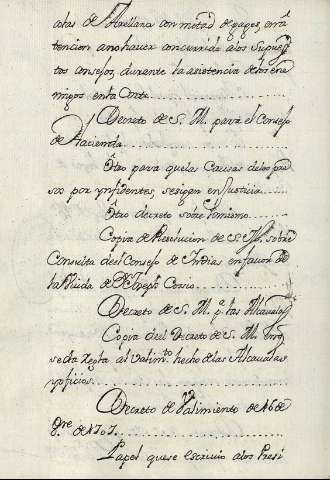 atas de Arellano con metad de gages, en a
tencion a no haver concurrido a los supues
tos consejos, durante la asistencia de los ene
migos en la Corte
Decreto de S. M. para el Consejo
de Hacienda
Otro para que las Causas de los pre
sos por ynfidentes, se sigan en Justicia
Otro decreto sobre lo mismo
Copia de Resolucion de S. M. sobre
Consulta del Consejo de Indias en favor de
la Viuda de Dn Joseph Corso
Decreto de S. M. pa las Alcavalas
Copia del Decreto de S. M. en q
se da Regla al valimto hecho de las Alcavalas
y oficios
Decreto de Valimiento de 16 de
9re de 1707
Papel que se escrivio a los Presi